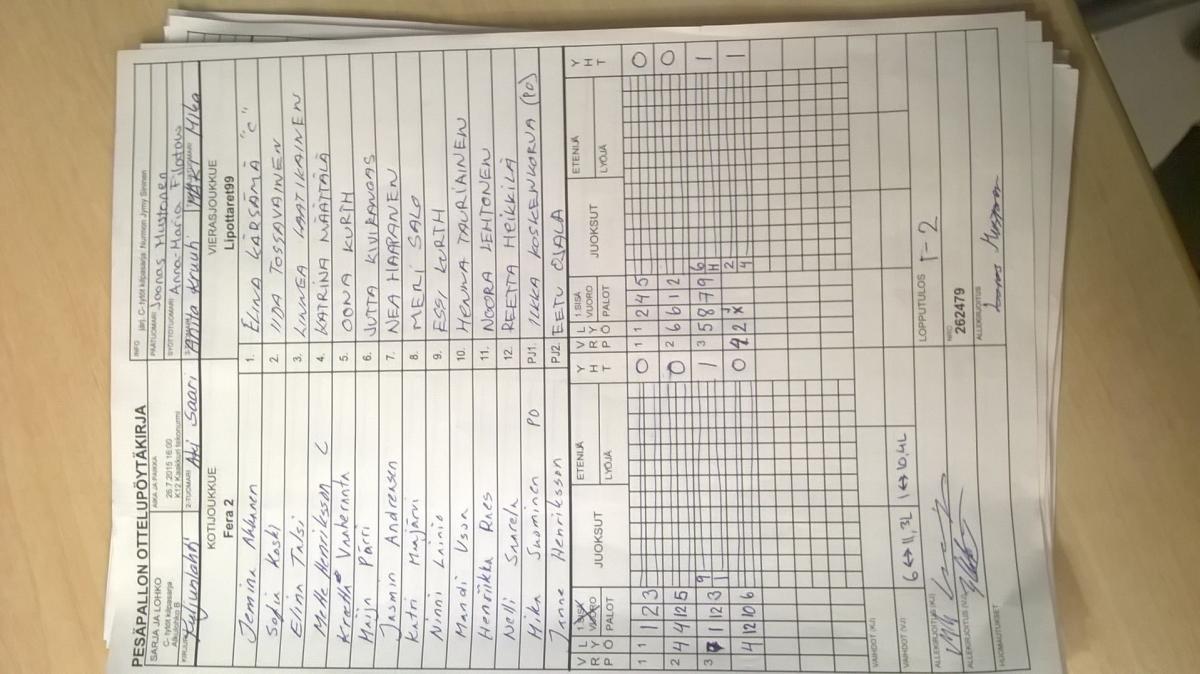 PESÄPALLON OTTELUPÖYTÄKIRJA
SARJA JA LOHKO
C- tytöt kilpasarja
Alkulohko B
AIKA JA PAIKKA
26.7.2015 16:00
K12 Kaakkuri tekonurmi
INFO järj. C- tytöt kilpasarja: Nurmon Jymy Sininen
PÄÄTUOMARI Joonas Mustonen
SYÖTTÖTUOMARI Anna-Maria Filatova
KIRJURI
2-TUOMARI Aki Saari
3-TUOMARI Anna Kruuh
MÄKI Mika
KOTIJOUKKUE
Fera 2
VIERASJOUKKUE
Lipottaret99
Jemina 1. ELINA KÄRSÄMÄ "C"
Sofia Koski 2. IIDA TOSSAVAINEN
Elina Talsi 3. LINNEA LAATIKAINEN
Mette Henriksson C 4. KATARINA MÄÄTTÄLÄ
Vaaheranta 5. OONA KURTH
Maija Pärri 6. JUTTA KIVIKANGAS
Jasmin Andreasen 7. NEA HAAPANEN
Katri Majjärvi 8. MERI SALO
Ninni Lainio 9. ESSI KURTH
Mandi 10. HENNA TAURIAINEN
Henriikka 11. NOORA LEHTONEN
Nelli Saarela 12. REETTA HEIKKILÄ
Mika Suominen PO PJ1. ILKKA KOSKENKORVA (PO)
Janne Henriksson PJ2. EETU OJALA
V R P L Y Ö 1.SISÄ VUORO PALOT JUOKSUT ETENIJÄ LYÖJÄ Y H T V R P L Y Ö 1.SISÄ VUORO PALOT JUOKSUT ETENIJÄ LYÖJÄ Y H T
1 1 1 2 3 0 0 1 2 4 5 0
2 4 4 12 5 0 2 6 6 12 0
3 1 11 2 3 9 1 1 3 5 8 7 9 6 H 1
4 12 10 6 0 4 2 X 2 4 1
VAIHDOT (KJ)
VAIHDOT (VJ) 6↔11, 3L 1↔10, 4L
ALLEKIRJOITUS (KJ)
LOPPUTULOS 1-2
ALLEKIRJOITUS (VJ)
NRO
262479
ALLEKIRJOITUS
HUOMAUTUKSET